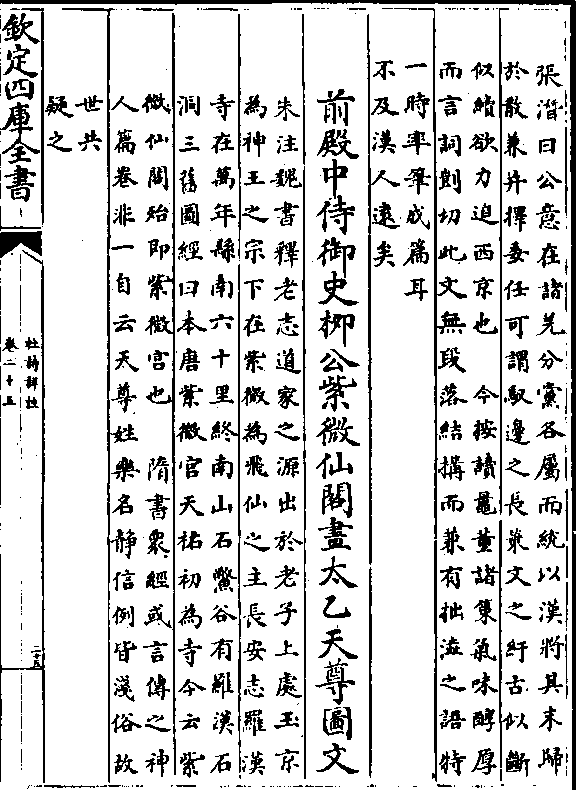 張溍曰公意在諸羌分黨各屬而統以漢將其末歸
於散兼并擇委任可謂馭邊之長策文之紆古似斷
似續欲力追西京也　今按讀鼂董諸集氣味醇厚
而言詞剴切此文無段落結搆而兼有拙澁之語特
一時率筆成篇耳
不及漢人遠矣
前殿中侍御史柳公紫微仙閣畫太乙天尊圖文
朱注魏書釋老志道家之源出於老子上處玉京
為神王之宗下在紫微為飛仙之主長安志羅漢
寺在萬年縣南六十里終南山石鱉谷有羅漢石
洞三舊圖經曰本唐紫微宫天祐初為寺今云紫
微仙閣殆即紫微宫也　隋書衆經或言傳之神
人篇卷非一自云天尊姓樂名静信例皆淺俗故
世共
疑之
欽定四庫全書
杜詩詳註
卷二十五